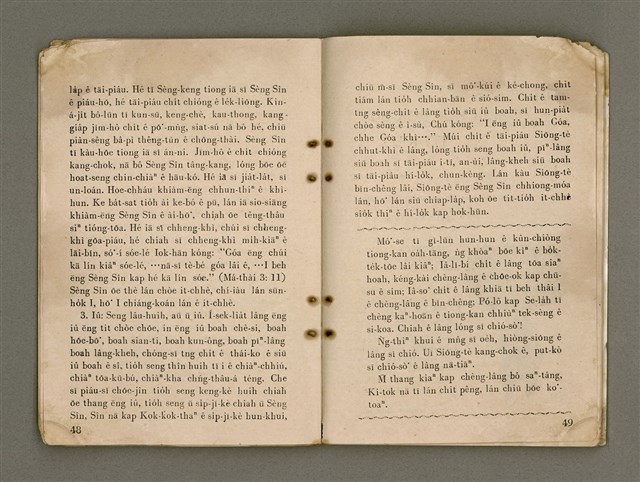 la̍p ê tāi-piáu. Hé tī Sèng-keng tiong iā sī Sèng Sîn
ê piáu-hō, hé tāi-piáu chi̍t chióng ê le̍k-liōng. Kin-
á-ji̍t bô-lūn tī kun-sū, keng-chè, kau-thong, kang-
gia̍p jīm-hô chi̍t ê pō͘-mn̂g, siat-sú nā bô hé, chiū
piān-sêng bâ-pì thêng-tùn ê chōng-thài. Sèng Sîn
tī kàu-hōe tiong iā sī án-ni. Jīm-hô ê chi̍t chióng
kang-chok, nā bô Sèng Sîn tāng-kang, lóng bōe ōe
hoat-seng chin-chiàⁿ ê hāu-kó. Hé iā sī jia̍t-lia̍t, sī
un-loán. Hoe-chháu khiàm-ēng chhun-thiⁿ ê khì-
hun. Ke bat-sat tio̍h ài ke-bó ê pū, lán iā sio-siāng
khiàm-ēng Sèng Sîn ê ài-hō͘, chiah ōe tēng-thâu
siⁿ tióng-tōa. Hé iā sī chheng-khì, chúi sī chheng-
khì gōa-piáu, hé chiah sī chheng-khì mi̍h-kiāⁿ ê
lāi-bīn, só͘-í sóe-lé Iok-hān kóng: “Góa ēng chúi
kā lín kiâⁿ sóe-lé, …nā-sī tè-bé góa lâi ê, …I beh
ēng Sèng Sîn kap hé kā lín sóe.” (Mā-thài 3: 11)
Sèng Sîn ōe thè lán chòe it-chhè, chí-iàu lán sūn-
ho̍k I, hō͘ I chiáng-koán lán ê it-chhè.
3. Iû: Seng lâu-huih, āu ū iû. Í-sek-lia̍t lâng ēng
iû ēng tit chòe chōe, in ēng iû boah chè-si, boah
hōe-bō͘, boah sian-ti, boah kun-ông, boah pīⁿ-lâng
boah lâng-kheh, chóng-sī tng chi̍t ê thái-ko ê siū
iû boah ê sî, tio̍h seng thîn huih tī i ê chiàⁿ-chhiú,
chiàⁿ tōa-kū-bú, chiàⁿ-kha chńg-thâu-á téng. Che
sī piáu-sī chōe-jîn tio̍h seng keng-kè huih chiah
ōe thang ēng iû, tio̍h seng ū si̍p-jī-kè chiah ū Sèng
Sîn, Sîn nā kap Kok-kok-thaⁿ ê si̍p-jī-kè hun-khui,
48
chiū m̄-sī Sèng Sîn, sī mô͘-kùi ê ké-chong, chi̍t
tiám lán tio̍h chhian-bān ê sió-sim. Chi̍t ê tam-
tng sèng-chi̍t ê lâng tio̍h siū iû boah, sī hun-pia̍t
chòe sèng ê ì-sù, Chú kóng: “I ēng iû boah Góa,
chhe Góa khì⋯.” Múi chi̍t ê tāi-piáu Siōng-tè
chhut-khì ê lâng, lóng tio̍h seng boah iû, pīⁿ-lâng
siū boah sī tāi-piáu i-tī, an-ùi, lâng-kheh siū boah
sī tāi-piáu hi-lo̍k, chun-kèng. Lán kàu Siōng-tè
bīn-chêng lâi, Siōng-tè ēng Sèng Sîn chhiong-móa
lán, hō͘ lán siū chiap-la̍p, koh ōe tit-tio̍h it-chhè
sio̍k thiⁿ ê hi-lo̍k kap hok-hūn.
Mô͘-se tī gī-lūn hun-hun ê kûn-chiòng
tiong-kan oa̍h-tāng, ǹg khòaⁿ bōe kìⁿ ê bo̍k-
te̍k-tōe lâi kiâⁿ; Iâ-lī-bí chi̍t ê lâng tōa siaⁿ
hoah, kèng-kài chèng-lâng ê chōe-ok kap chū-
su ê sim; Iâ-so͘ chi̍t ê lâng khiā tī beh thâi I
ê chèng-lâng ê bīn-chêng; Pó-lô kap Se-la̍h tī
chêng kaⁿ-hoān ê tiong-kan chhiùⁿ tek-sèng ê
si-koa. Chiah ê lâng lóng sī chió-sò͘!
N̂g-thiⁿ khui ê mn̂g sī oe̍h, hiòng-siōng ê
lâng sī chió. Uī Siōng-tè kang-chok ê, put-kò
sī chió-sò͘ ê lâng nā-tiāⁿ.
M̄ thang kiaⁿ kap chèng-lâng bô saⁿ-tâng,
Ki-tok nā tī lán chi̍t pêng, lán chiū bōe ko͘-
toaⁿ.
49